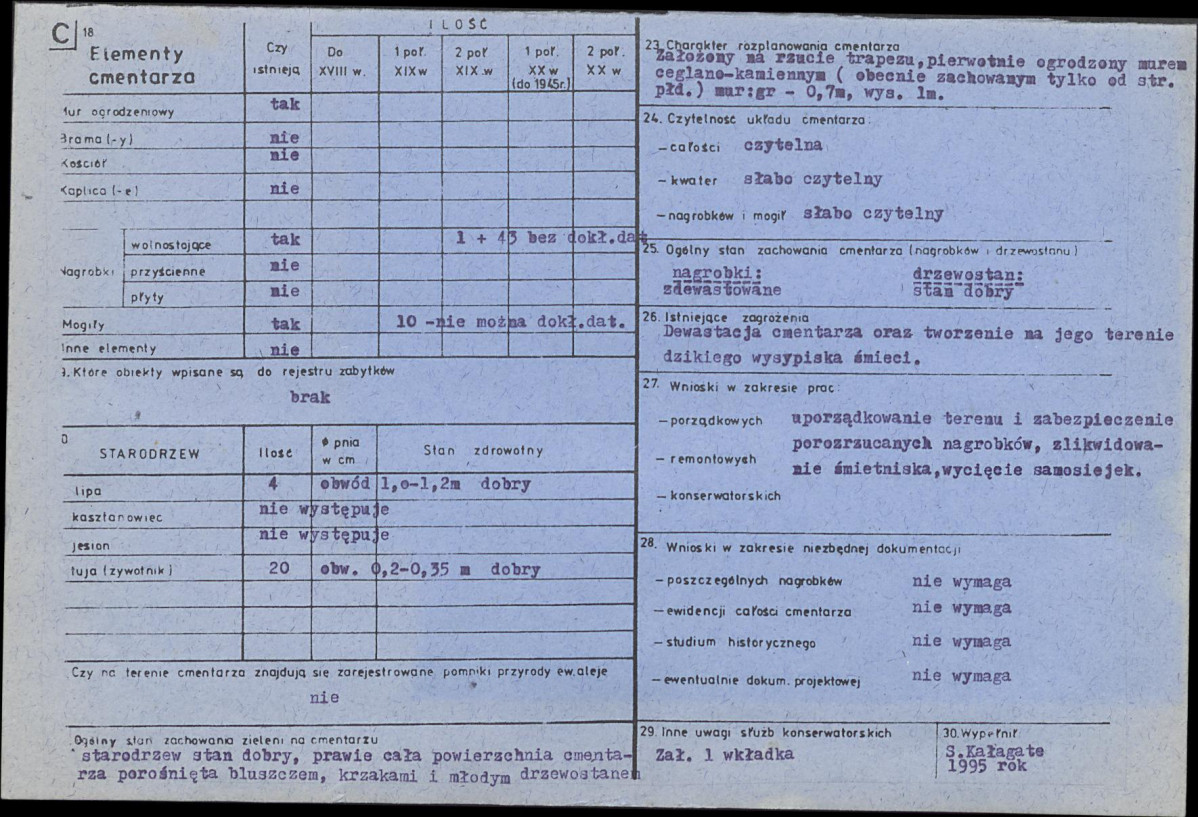 C 18
Elementy
cmentarza
Czy
istnieją
ILOŚĆ
Do
XVIII w.
1 poł.
XIX w
2 poł
XIX w
1 poł.
XX w
(do 1945r.)
2 poł.
XX w
Mur ogrodzeniowy tak
Brama (-y) nie
Kościół nie
Kaplica (-e) nie
Nagrobki
wolnostojące tak 1 + 43 bez dokł.dat
przyścienne nie
płyty nie
Mogiły tak 10 -nie można dokł.dat.
Inne elementy nie
9. Które obiekty wpisane są do rejestru zabytków
brak
0
STARODRZEW Ilość ø pnia
w cm Stan zdrowotny
lipa 4 obwód 1,0-1,2m dobry
kasztanowiec nie występuje
jesion nie występuje
tuja (żywotnik) 20 obw. 0,2-0,35 m dobry
Czy na terenie cmentarza znajdują się zarejestrowane pomniki przyrody ew.aleje
nie
Ogólny stan zachowania zieleni na cmentarzu
starodrzew stan dobry, prawie cała powierzchnia cmenta-
rza porośnięta bluszczem, krzakami i młodym drzewostanem
23. Charakter rozplanowania cmentarza
Założony na rzucie trapezu,pierwotnie ogrodzony murem
ceglano-kamiennym ( obecnie zachowanym tylko od str.
płd.) mur:gr - 0,7m, wys. 1m.
24. Czytelność układu cmentarza:
– całości czytelna
– kwater słabo czytelny
– nagrobków i mogił słabo czytelny
25. Ogólny stan zachowania cmentarza (nagrobków i drzewostanu)
nagrobki: drzewostan:
zdewastowane stan dobry
26. Istniejące zagrożenia
Dewastacja cmentarza oraz tworzenie na jego terenie
dzikiego wysypiska śmieci.
27. Wnioski w zakresie prac:
– porządkowych uporządkowanie terenu i zabezpieczenie
porozrzucanych nagrobków, zlikwidowa-
– remontowych nie śmietniska,wycięcie samosiejek.
– konserwatorskich
28. Wnioski w zakresie niezbędnej dokumentacji
– poszczególnych nagrobków nie wymaga
– ewidencji całości cmentarza nie wymaga
– studium historycznego nie wymaga
– ewentualnie dokum. projektowej nie wymaga
29. Inne uwagi służb konserwatorskich
Zał. 1 wkładka
30. Wypełnił
S.Kałagate
1995 rok